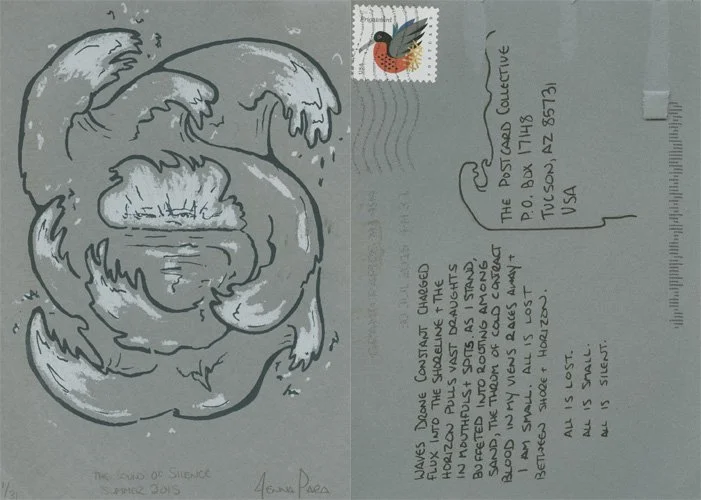 THE SOUND OF SILENCE
SUMMER 2015
1/31
THE POSTCARD COLLECTIVE
P.O. BOX 17148
TUCSON, AZ 85731
USA
WAVES DRONE CONSTANT CHARGED
FLUX INTO THE SHORELINE + THE
HORIZON PULLS VAST DRAUGHTS
IN MOUTHFULS + SPITS. AS I STAND,
BUFFETED INTO ROOTING AMONG
SAND, THE THRUM OF COLD CONTRACT
BLOOD IN MY VIENS RACES AWAY +
I AM SMALL. ALL IS LOST
BETWEEN SHORE + HORIZON.
ALL IS LOST.
ALL IS SMALL.
ALL IS SILENT.